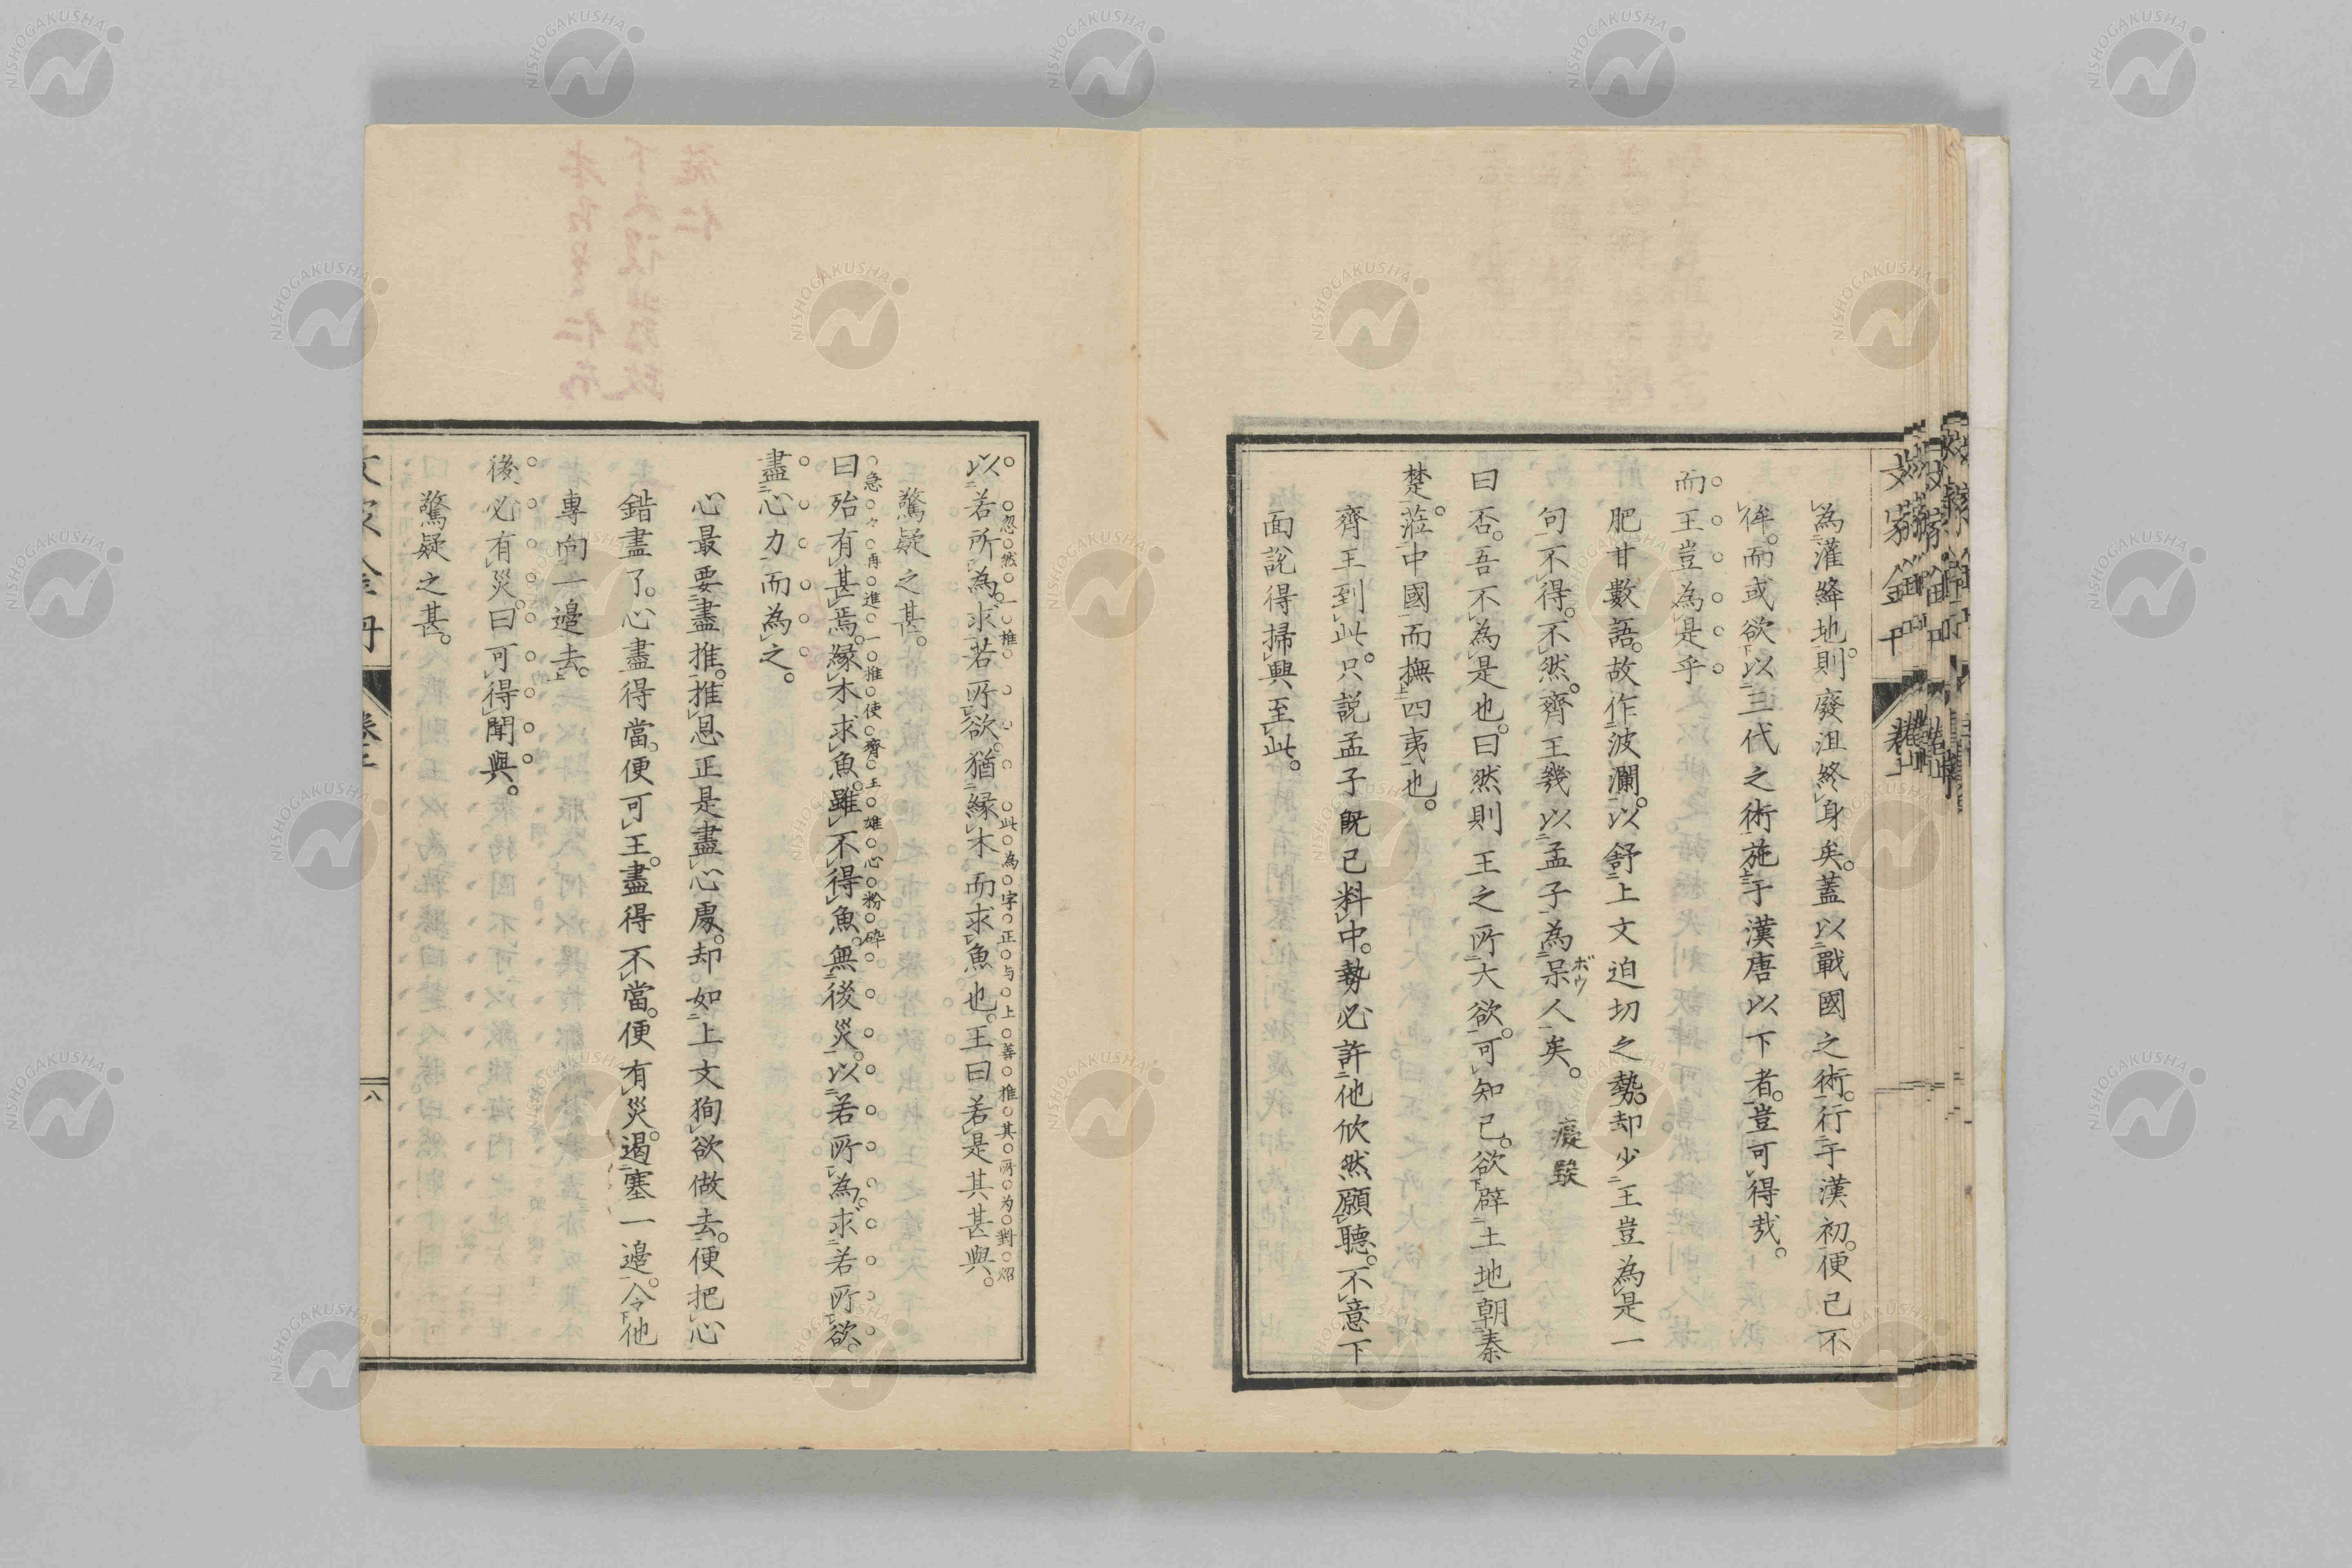 為灌絳地。則廢沮終身矣。蓋以戰國之術。行于漢初。便已不
侔。而或欲以三代之術施于漢唐以下者。豈可得哉。
而王豈為是乎
肥甘數語。故作波瀾。以舒上文迫切之勢。却少王豈為是一
句不得。不然。齊王幾以孟子為呆人矣。
ボウ
癡騃
曰否。吾不為是也。曰然則王之所大欲。可知已。欲辟土地朝秦
楚。莅中國而撫四夷也。
齊王到此。只說孟子既已料中。勢必許他欣然願聽。不意下
面說得掃興至此。
以若所為。求若所欲。猶緣木而求魚也。王曰若是其甚與。
忽然一推 此為字正与上善推其所为對炤
驚疑之甚。
曰殆有甚焉。緣木求魚。雖不得魚。無後災。以若所為。求若所欲。
急々再進一推使齊王雄心粉碎
盡心力而為之。
心最要盡推。推恩正是盡心處。却如上文狥欲做去。便把心
錯盡了。心盡得當。便可王。盡得不當。便有災。遏塞一邊。令他
專向一邊去。
後必有災。曰可得聞與。
驚疑之甚。
八
NISHOGAKUSHA